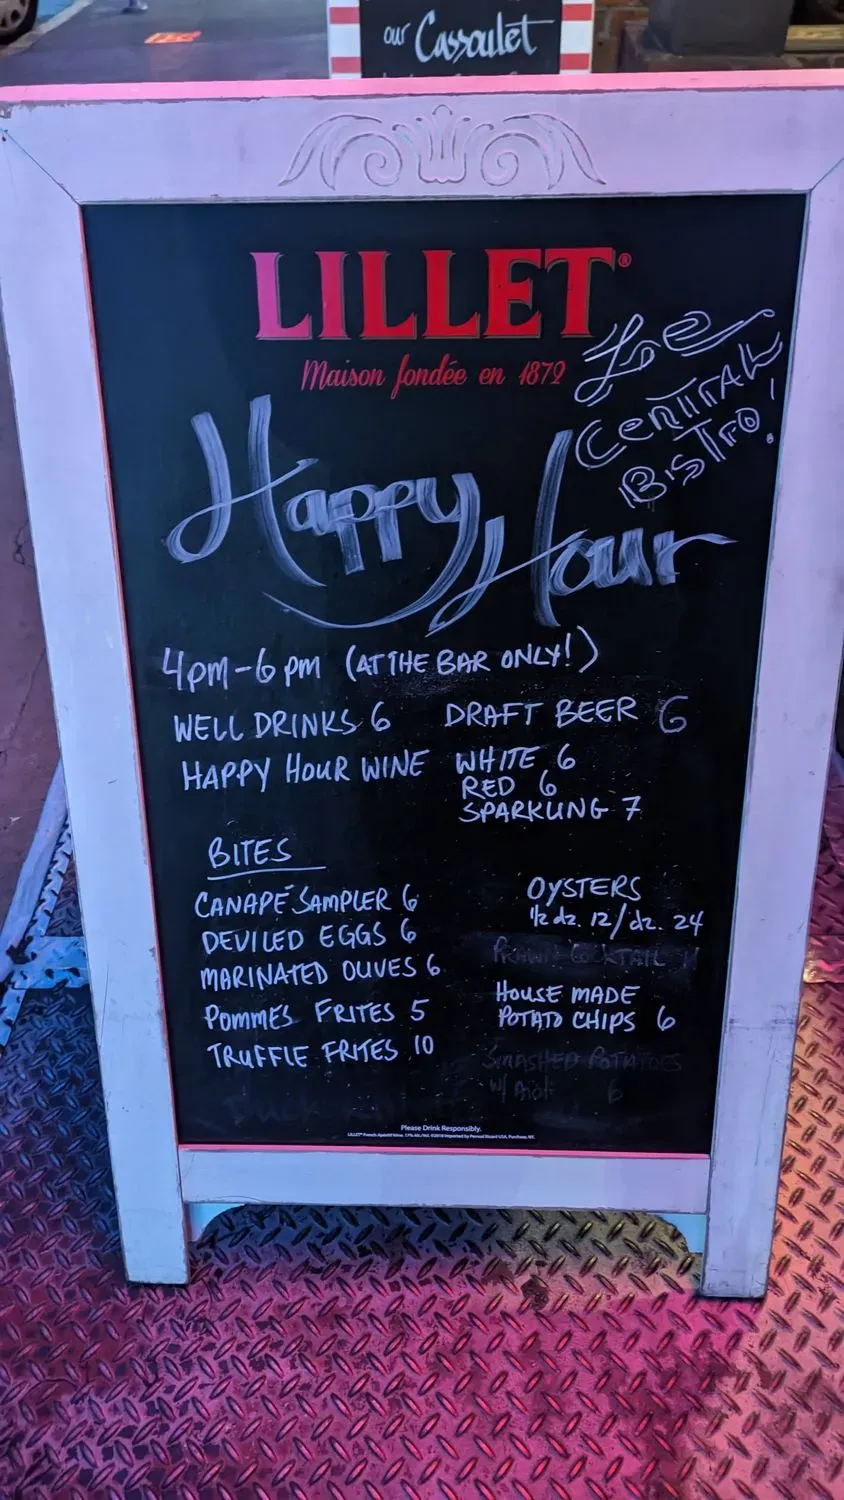 our Cassoulet
LILLET®
Maison fondée en 1872
Le
CENTRAL
BISTRO!
Happy
Hour
4pm-6pm (AT THE BAR ONLY!)
WELL DRINKS 6 DRAFT BEER 6
HAPPY HOUR WINE WHITE 6
RED 6
SPARKLING 7
BITES
CANAPÉ SAMPLER 6
DEVILED EGGS 6
MARINATED OLIVES 6
POMMES FRITES 5
TRUFFLE FRITES 10
OYSTERS
1/2 dz. 12/dz. 24
PRAWN COCKTAIL
HOUSE MADE
POTATO CHIPS 6
SMASHED POTATOES
w/ Aioli 6
DUCK
Please Drink Responsibly.
LILLET® French Apéritif Wine. 17% Alc./Vol. ©2018 Imported by Pernod Ricard USA, Purchase, NY.